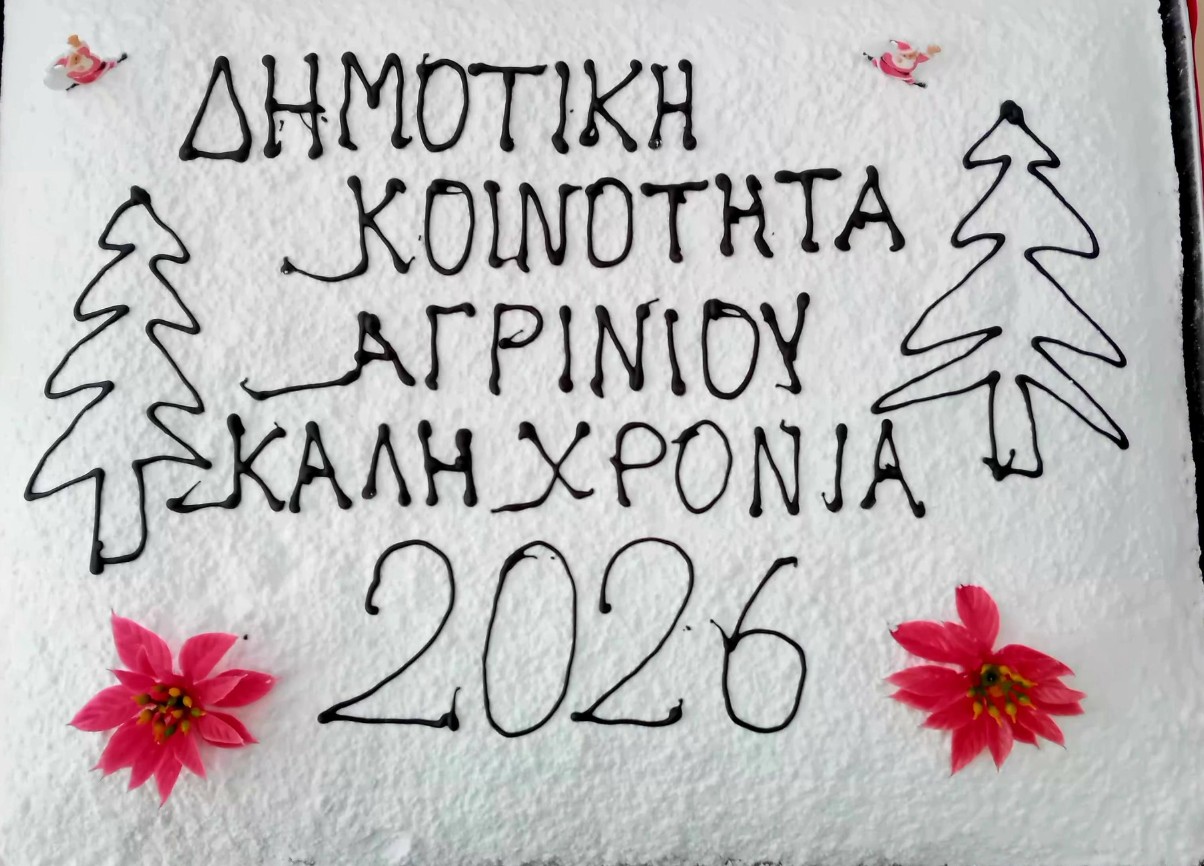 ΔΗΜΟΤΙΚΗ
ΚΟΙΝΟΤΗΤΑ
ΑΓΡΙΝΙΟΥ
ΚΑΛΗ ΧΡΟΝΙΑ
2026